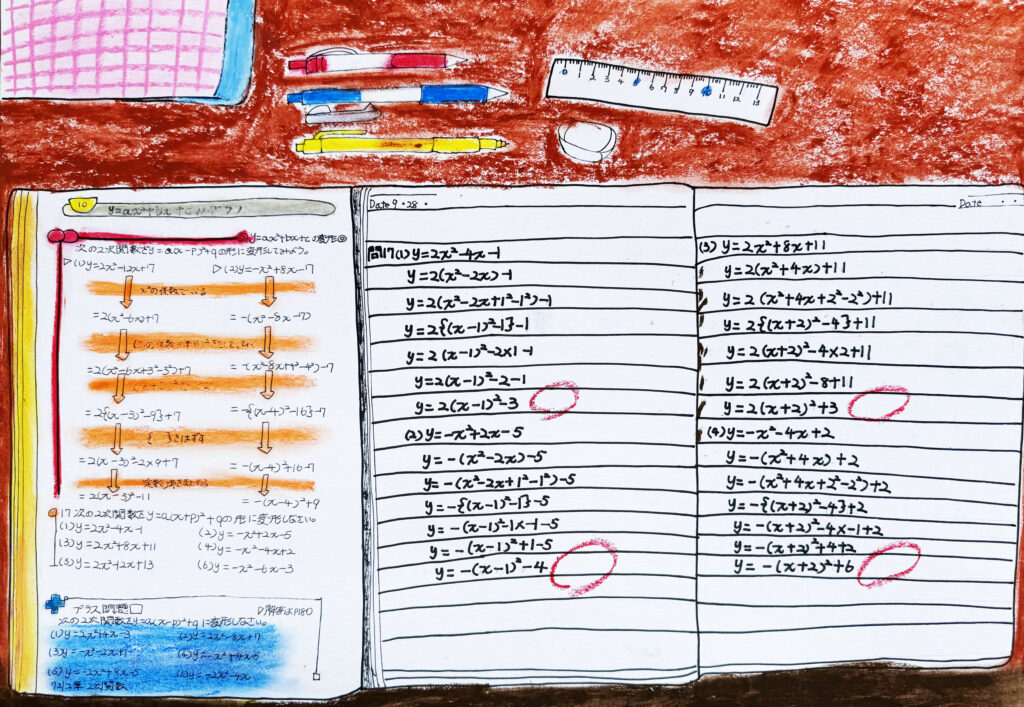 0 1 2 3 4 5 6 7 8 9 10 11 12 13
10
y=ax²+bx+cのグラフ
y=ax²+bx+cの変形◎
次の2次関数をy=a(x-p)²+qの形に変形してみよう。
▷(1)y=2x²-12x+7
▷(2)y=-x²+8x-7
x²の係数でくくる
=2(x²-6x)+7
=-(x²-8x-7)
=2(x²-6x+3²-3²)+7
=-(x²-8x+4²-4²)-7
=2{(x-3)²-9}+7
=-{(x-4)²-16}-7
{ }をはずす
=2(x-3)²-2×9+7
=-(x-4)²+16-7
=2(x-3)²-11
=-(x-4)²+9
17 次の2次関数をy=a(x+p)²+qの形に変形しなさい。
(1)y=2x²-4x-1
(2)y=-x²+2x-5
(3)y=2x²+8x+11
(4)y=-x²-4x+2
(5)y=2x²+2x+13
(6)y=-x²-6x-3
プラス問題
▷解答はP180
次の2次関数をy=a(x-p)²+qに変形しなさい。
(1)y=2x²+4x-3
(2)y=2x²-8x+7
(3)y=-x²-2x+1
(4)y=-x²+4x-5
(5)y=-2x²+8x-5
(6)y=-2x²-4x
72/2章 2次関数
Date 9・28・
問17(1)y=2x²-4x-1
y=2(x²-2x)-1
y=2(x²-2x+1²-1²)-1
y=2{(x-1)²-1}-1
y=2(x-1)²-2×1-1
y=2(x-1)²-2-1
y=2(x-1)²-3
(2)y=-x²+2x-5
y=-(x²-2x)-5
y=-(x²-2x+1²-1²)-5
y=-{(x-1)²-1}-5
y=-(x-1)²-1×-1-5
y=-(x-1)²+1-5
y=-(x-1)²-4
Date ・・
(3)y=2x²+8x+11
y=2(x²+4x)+11
y=2(x²+4x+2²-2²)+11
y=2{(x+2)²-4}+11
y=2(x+2)²-4×2+11
y=2(x+2)²-8+11
y=2(x+2)²+3
(4)y=-x²-4x+2
y=-(x²+4x)+2
y=-(x²+4x+2²-2²)+2
y=-{(x+2)²-4}+2
y=-(x+2)²-4×-1+2
y=-(x+2)²+4+2
y=-(x+2)²+6